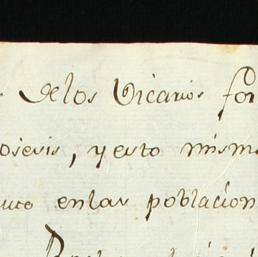 de los Vicarios for
ocesis, y esto mism
uto en las poblacion